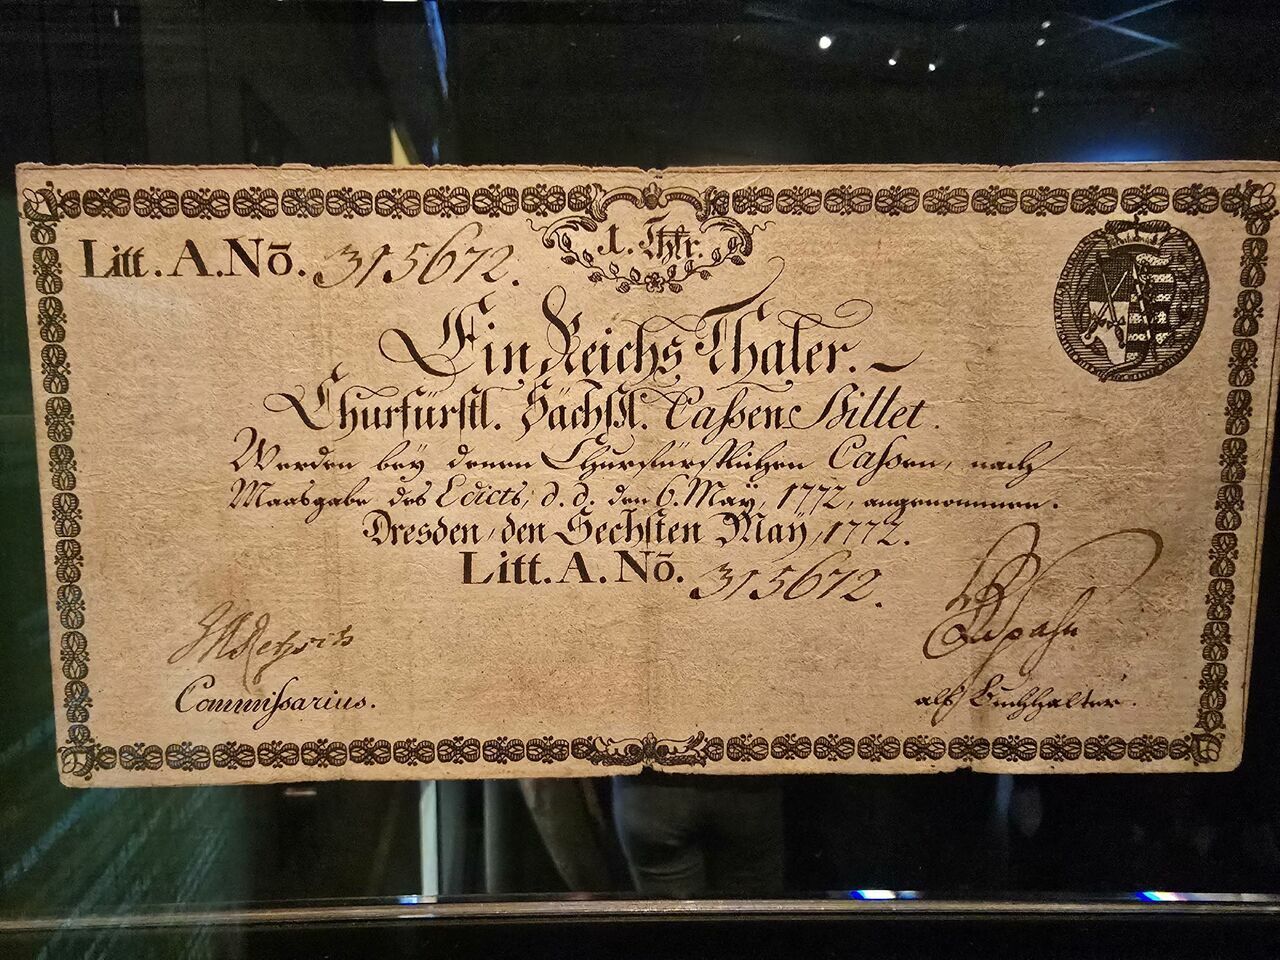 1. Thlr.
Litt. A. Nō. 315672.
Ein Reichs Thaler.
Churfürstl. Sächßl. Cassen Billet.
Werden bey denen Churfürstlichen Cassen, nach
Maasgabe des Edicts, d. d. den 6. May, 1772, angenommen.
Dresden, den Sechsten May, 1772.
Litt. A. Nō. 315672.
Commissarius.
als Buchhalter.